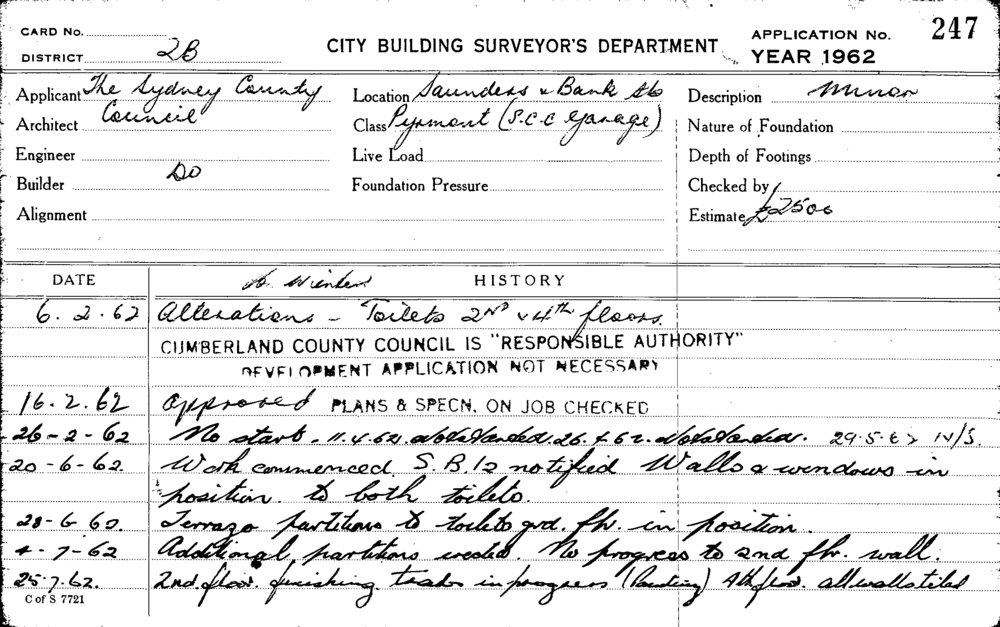 CARD No.
DISTRICT 2B
CITY BUILDING SURVEYOR'S DEPARTMENT
APPLICATION No. 247
YEAR 1962
Applicant The Sydney County
Council
Architect
Engineer
Builder Do
Alignment
Location Saunders & Bank Sts
Class Pyrmont (S.C.C Garage)
Live Load
Foundation Pressure
Description Minor
Nature of Foundation
Depth of Footings
Checked by
Estimate £2500
DATE
HISTORY
6.2.62 Alterations - Toilets 2nd & 4th floors.
CUMBERLAND COUNTY COUNCIL IS "RESPONSIBLE AUTHORITY"
DEVELOPMENT APPLICATION NOT NECESSARY
16.2.62 Approved PLANS & SPECN. ON JOB CHECKED
26-2-62 No start. 11.4.62. Not started. 26.4.62. Not started. 29.5.62 N/S.
20-6-62. Work commenced S.B.12 notified Walls & windows in
position. to both toilets.
28-6-62. Terrazo partitions to toilets grd. flr. in position.
4-7-62 Additional partitions erected. No progress to 2nd flr. wall.
25.7.62. 2nd floor. finishing trades in progress 4th floor. all walls tiled
C of S 7721